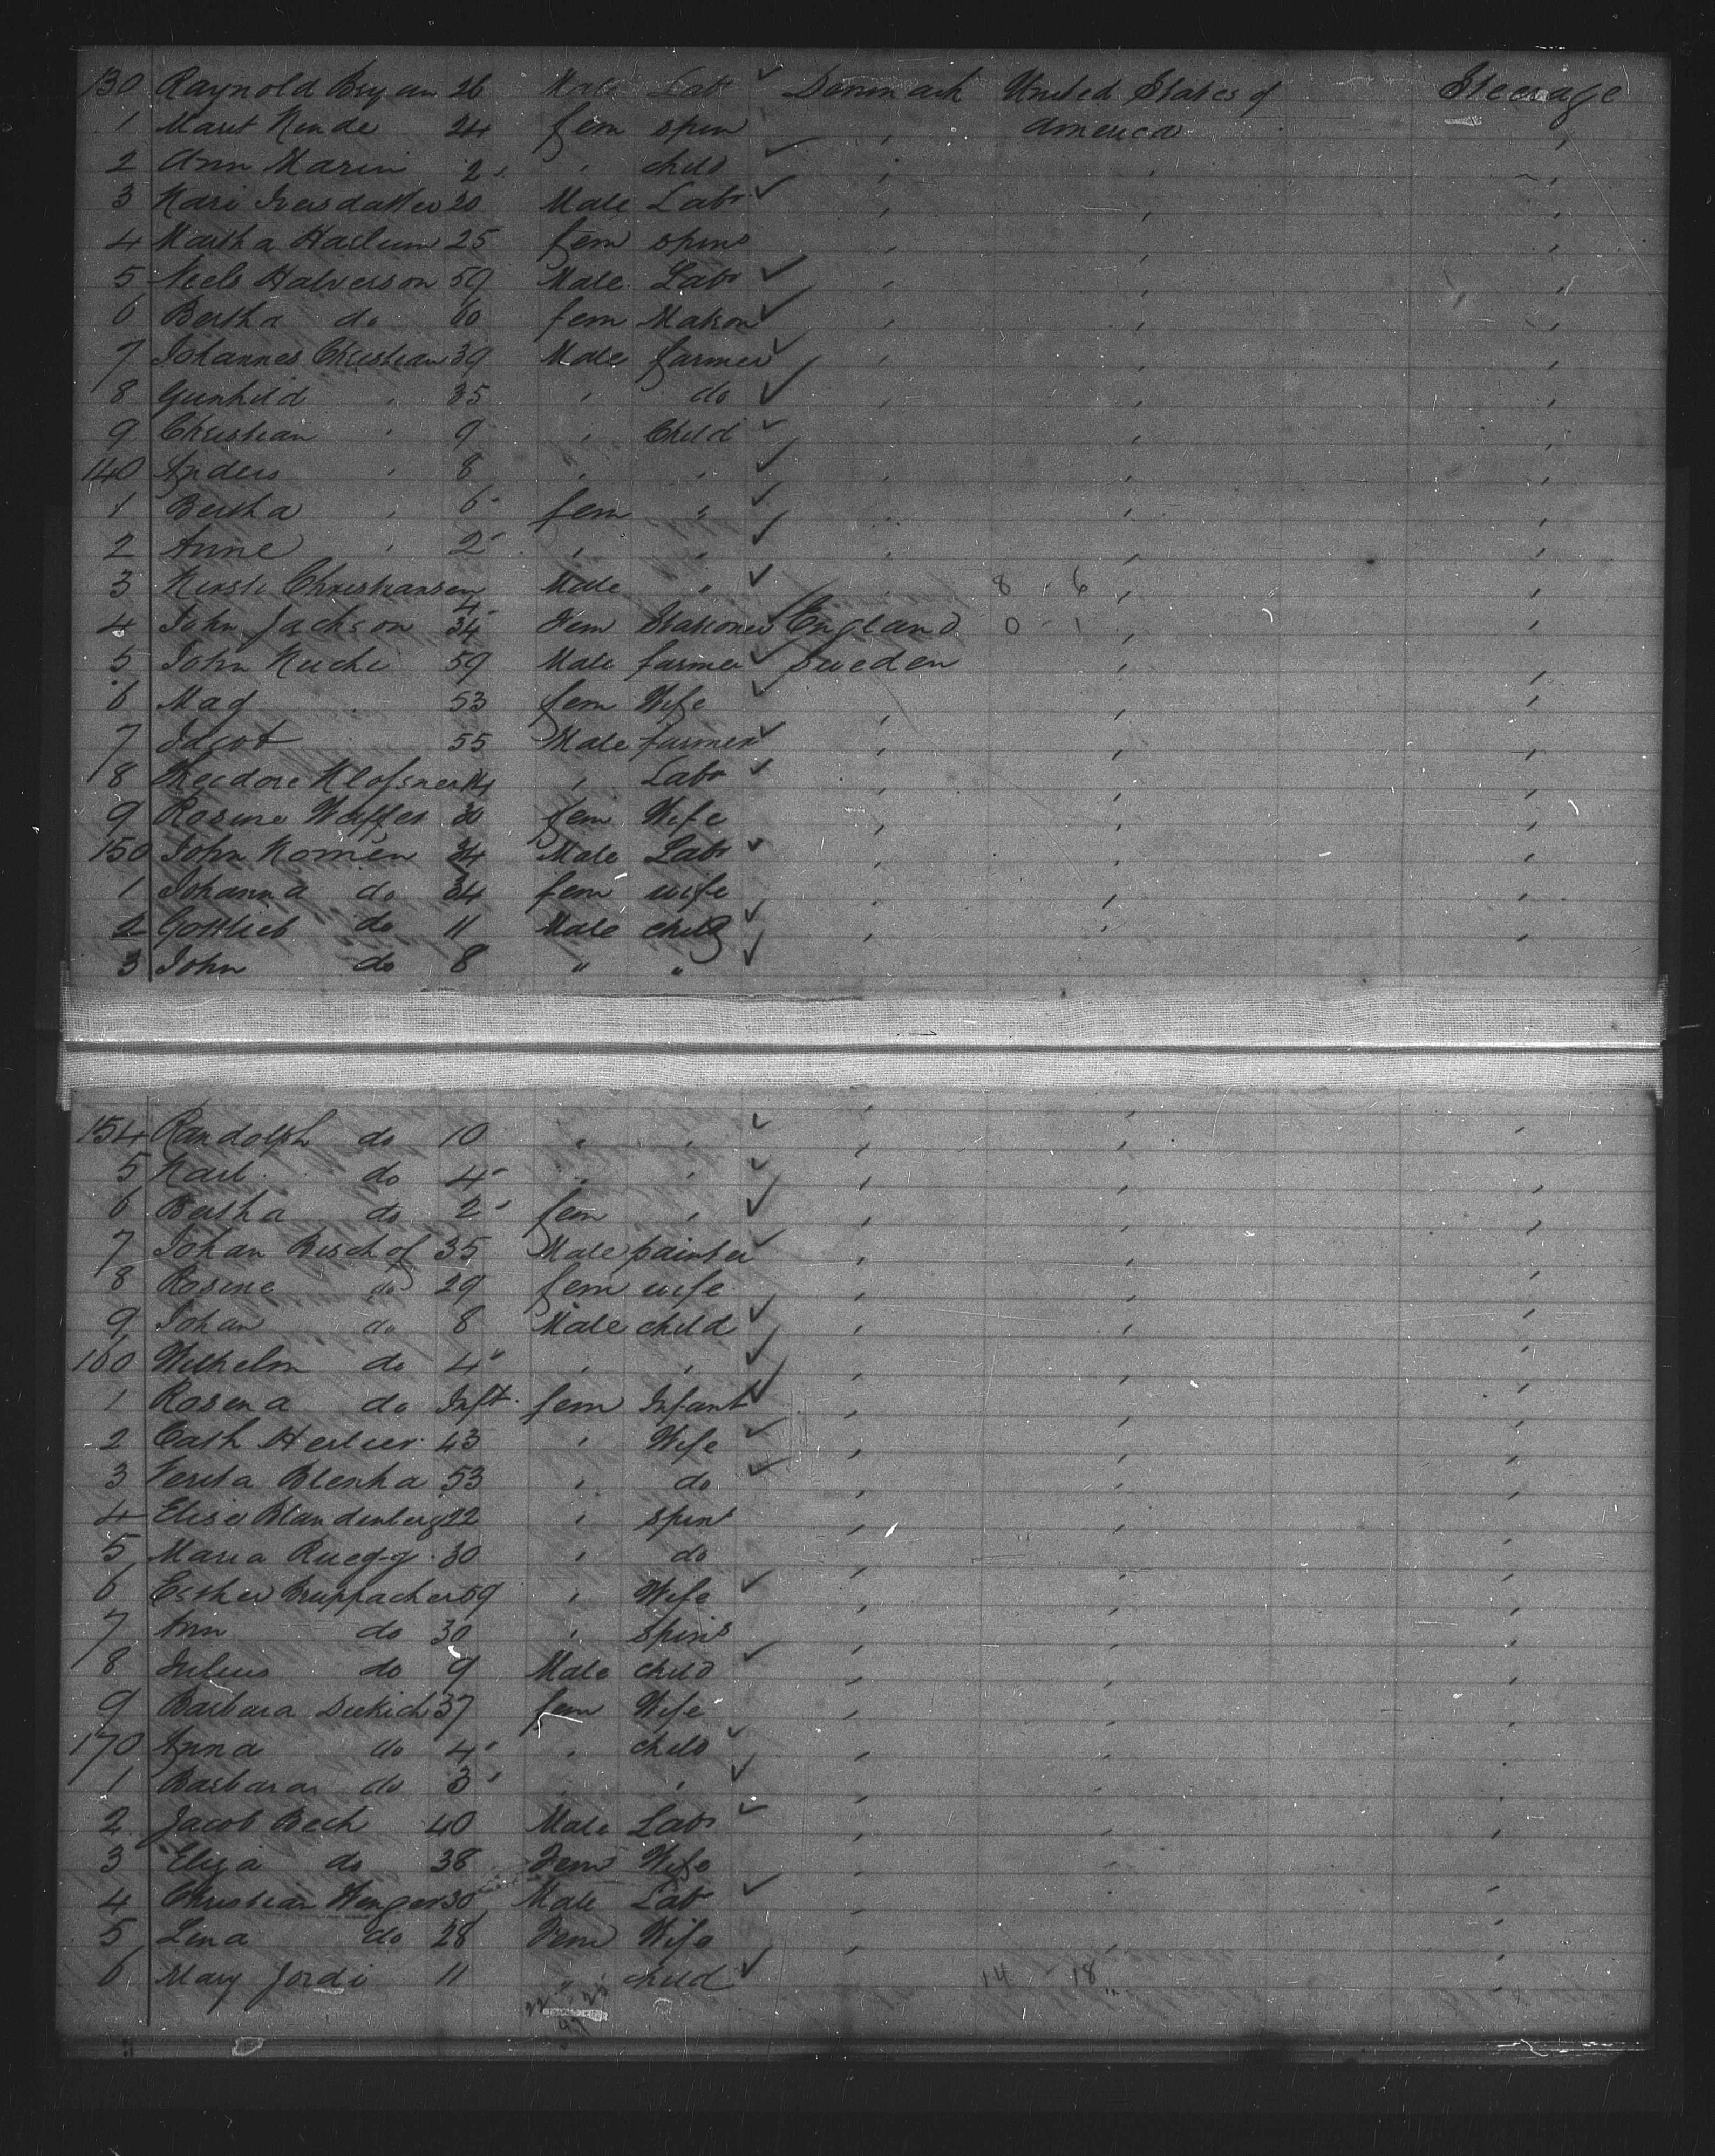 130 Raynold Bryan 26 Male Labr ✓ Denmark United States of Steerage
1 Marit Nende 24 fem spin , America ,
2 Ann Marin 2 , child ✓ , , ,
3 Kari Iversdatter 20 Male Labr ✓ , , ,
4 Martha Haslum 25 fem spins , , ,
5 Neels Halverson 59 Male Labr ✓ , , ,
6 Bertha do 60 fem Matron ✓ , , ,
7 Johannes Christian 39 Male farmer ✓ , , ,
8 Gunhild , 35 , do ✓ , , ,
9 Christian , 9 , Child ✓ , ,
140 Anders , 8 , , ✓ , , ,
1 Bertha , 6 fem " ✓ , ,
2 Anne , 2 , , ✓ , , ,
3 Kersti Christiansen 4 Male " ✓ 8 , 6 , ,
4 John Jackson 34 Fem Stationer England 0 - 1 , ,
5 John Kuchi 59 Male farmer ✓ Sweden , ,
6 Mag 53 fem Wife ✓ , , ,
7 Jacob 55 Male farmer ✓ , , ,
8 Theodore Klofsner 14 , Labr ✓ , , ,
9 Rosine 30 fem Wife , , ,
150 John Nomen 34 Male Labr ✓ , , ,
1 Johanna do 34 fem wife , , ,
2 Gottlieb do 11 Male child ✓ , , ,
3 John do 8 " " ✓
154 Randolph do 10 " , ✓ , , ,
5 Karl do 4 " , ✓ , , ,
6 Bertha do 2 fem , ✓ , , ,
7 Johan Bischof 35 Male painter ✓ , , ,
8 Rosine do 29 fem wife , , ,
9 Johan do 8 Male child ✓ , , ,
160 Wilhelm do 4 , , ✓ , , ,
1 Rosena do Inft. fem Infant ✓ , , ,
2 Cath 43 , Wife ✓ , , ,
3 Verena Blenka 53 , do ✓ , , ,
4 Elise Blandenberg 22 , spins , , ,
5 Maria Ruegg 30 , do , , ,
6 Esther Bruppacher 59 , Wife ✓ , , ,
7 Ann do 30 , spins , , ,
8 Julius do 9 Male child ✓ , , ,
9 Barbara 37 fem Wife , , ,
170 Anna do 4 , child ✓ , , ,
1 Barbara do 3 , , ✓ , ,
2 Jacob Bech 40 Male Labr ✓ , , ,
3 Eliza do 38 Fem Wife , , ,
4 Christian Wenger 30 Male Labr ✓ , , ,
5 Lena do 28 Fem Wife , , ,
6 Mary Jordi 11 " child ✓ 14 18